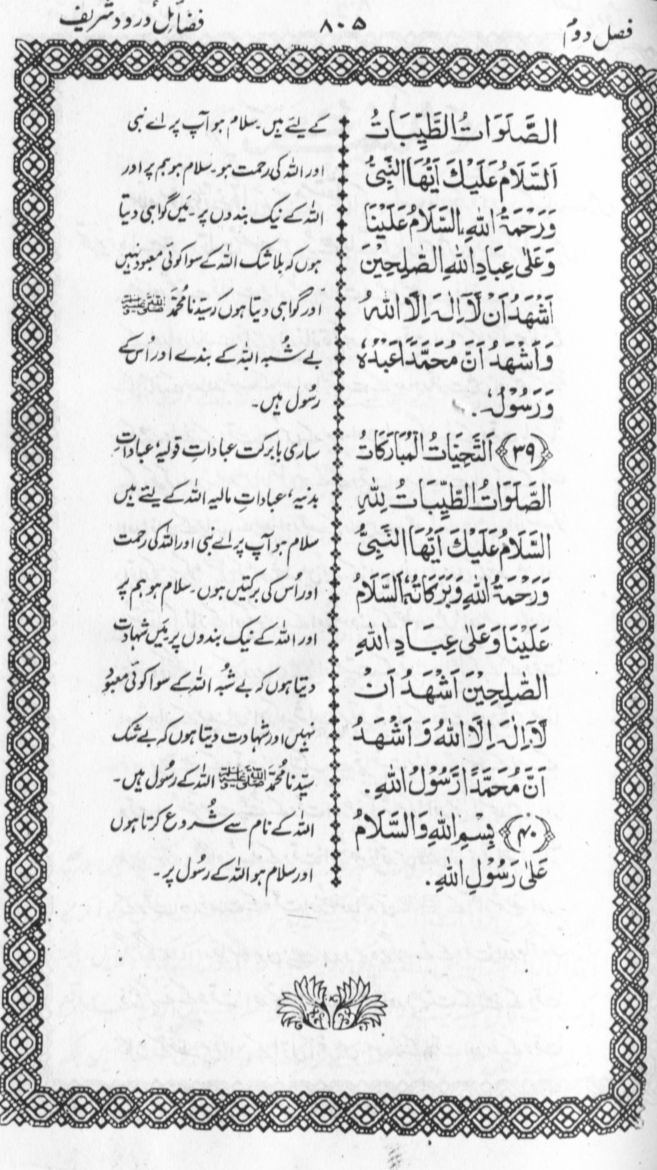 فصل دوم
۸۰۵
فضائل درود شریف
الصَّلَوَاتُ الطَّيِّبَاتُ
اَلسَّلَامُ عَلَيْكَ اَيُّهَا النَّبِيُّ
وَرَحْمَةُ اللهِ، اَلسَّلَامُ عَلَيْنَا
وَعَلٰى عِبَادِ اللهِ الصّٰلِحِيْنَ
اَشْهَدُ اَنْ لَّا اِلٰهَ اِلَّا اللهُ
وَاَشْهَدُ اَنَّ مُحَمَّدًا عَبْدُهٗ
وَرَسُوْلُهٗ.
﴿۳۹﴾ اَلتَّحِيَّاتُ الْمُبَارَكَاتُ
الصَّلَوَاتُ الطَّيِّبَاتُ لِلّٰهِ
اَلسَّلَامُ عَلَيْكَ اَيُّهَا النَّبِيُّ
وَرَحْمَةُ اللهِ وَبَرَكَاتُهٗ اَلسَّلَامُ
عَلَيْنَا وَعَلٰى عِبَادِ اللهِ
الصّٰلِحِيْنَ اَشْهَدُ اَنْ
لَّا اِلٰهَ اِلَّا اللهُ وَاَشْهَدُ
اَنَّ مُحَمَّدًا رَّسُوْلُ اللهِ.
﴿۴۰﴾ بِسْمِ اللهِ وَالسَّلَامُ
عَلٰى رَسُوْلِ اللهِ.
کے لئے ہیں۔ سلام ہو آپ پر اے نبی
اور اللہ کی رحمت ہو۔ سلام ہو ہم پر اور
اللہ کے نیک بندوں پر۔ میں گواہی دیتا
ہوں کہ بلا شک اللہ کے سوا کوئی معبود نہیں
اور گواہی دیتا ہوں کہ سیّدنا محمّد ﷺ
بے شُبہ اللہ کے بندے اور اُس کے
رسُول ہیں۔
ساری بابرکت عباداتِ قولیہ، عباداتِ
بدنیہ، عباداتِ مالیہ اللہ کے لئے ہیں
سلام ہو آپ پر اے نبی اور اللہ کی رحمت
اور اس کی برکتیں ہوں۔ سلام ہو ہم پر
اور اللہ کے نیک بندوں پر میں شہادت
دیتا ہوں کہ بے شُبہ اللہ کے سوا کوئی معبود
نہیں اور شہادت دیتا ہوں کہ بے شک
سیّدنا محمّد ﷺ اللہ کے رسُول ہیں۔
اللہ کے نام سے شُروع کرتا ہوں
اور سلام ہو اللہ کے رسُول پر۔